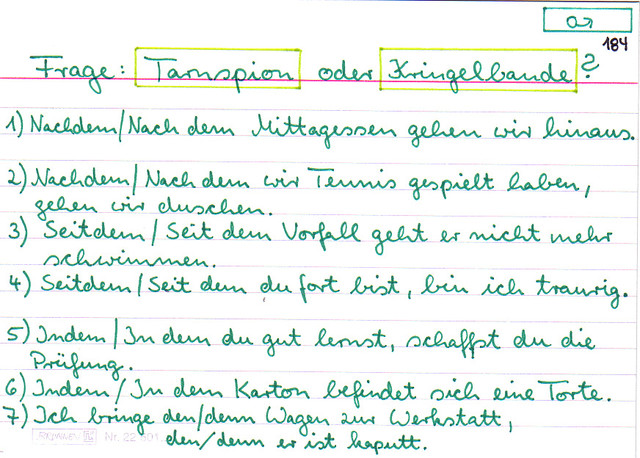 184
Frage: Tarnspion oder Kringelbande?
1) Nachdem/Nach dem Mittagessen gehen wir hinaus.
2) Nachdem/Nach dem wir Tennis gespielt haben,
gehen wir duschen.
3) Seitdem/Seit dem Vorfall geht er nicht mehr
schwimmen.
4) Seitdem/Seit dem du fort bist, bin ich traurig.
5) Indem/In dem du gut lernst, schaffst du die
Prüfung.
6) Indem/In dem Karton befindet sich eine Torte.
7) Ich bringe den/denn Wagen zur Werkstatt,
den/denn er ist kaputt.
Nr. 22